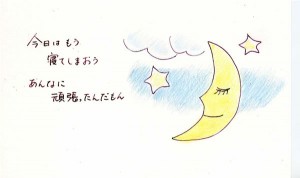 今日はもう
寝てしまおう
あんなに
頑張ったんだもん